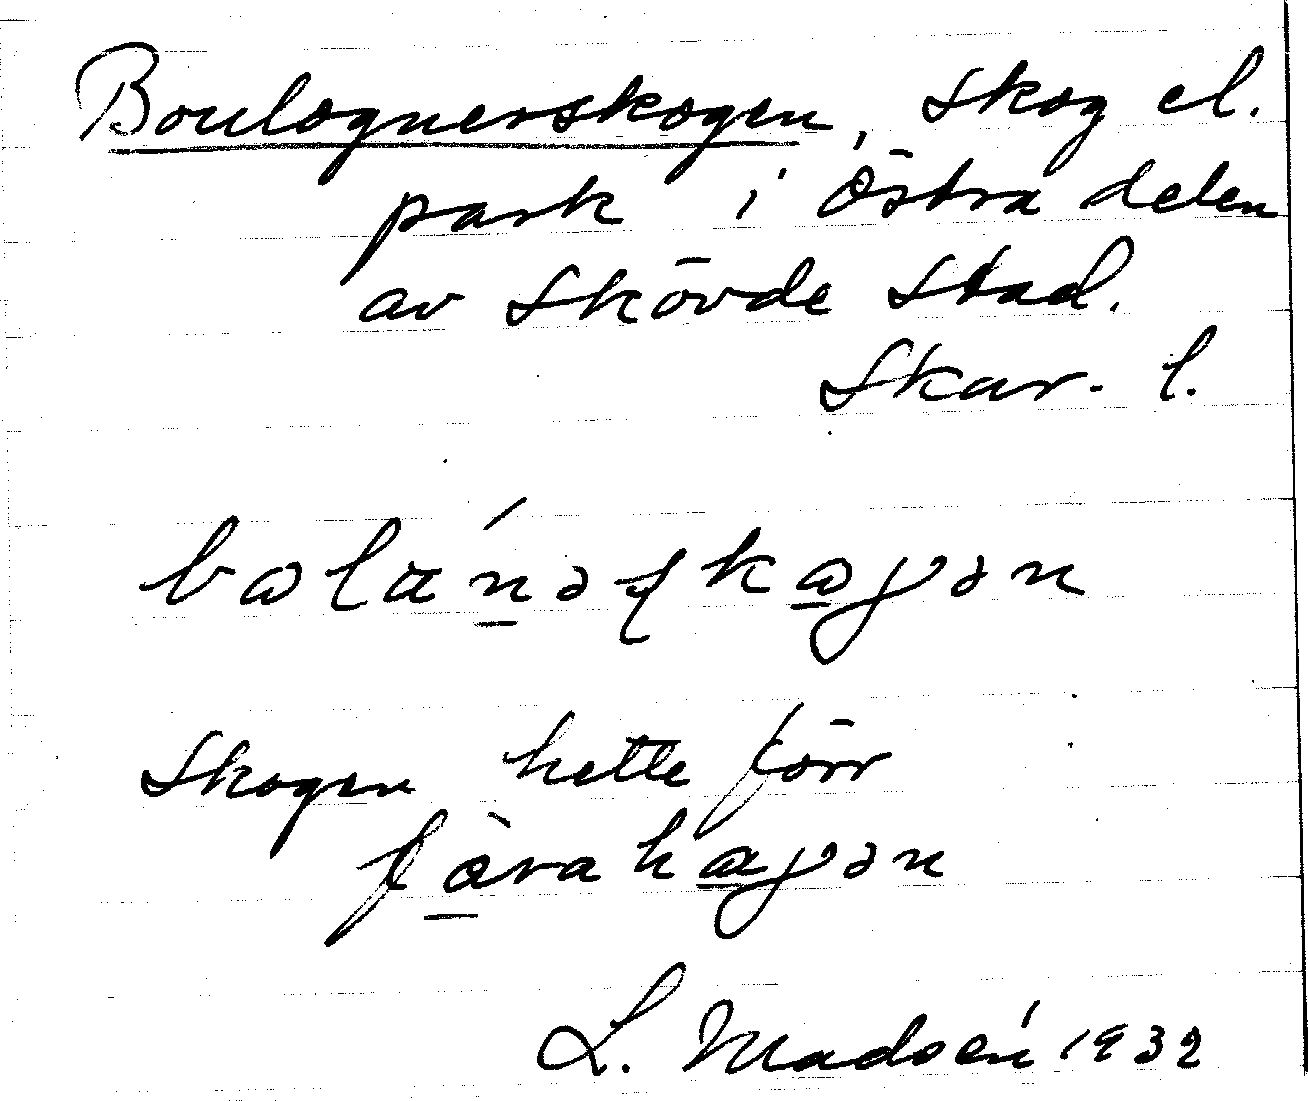 Boulognerskogen, skog el.
park i östra delen
av Skövde stad.
Skar. l.
bolánəſkogən
Skogen hette förr
fàrahagən
L. Madsén 1932